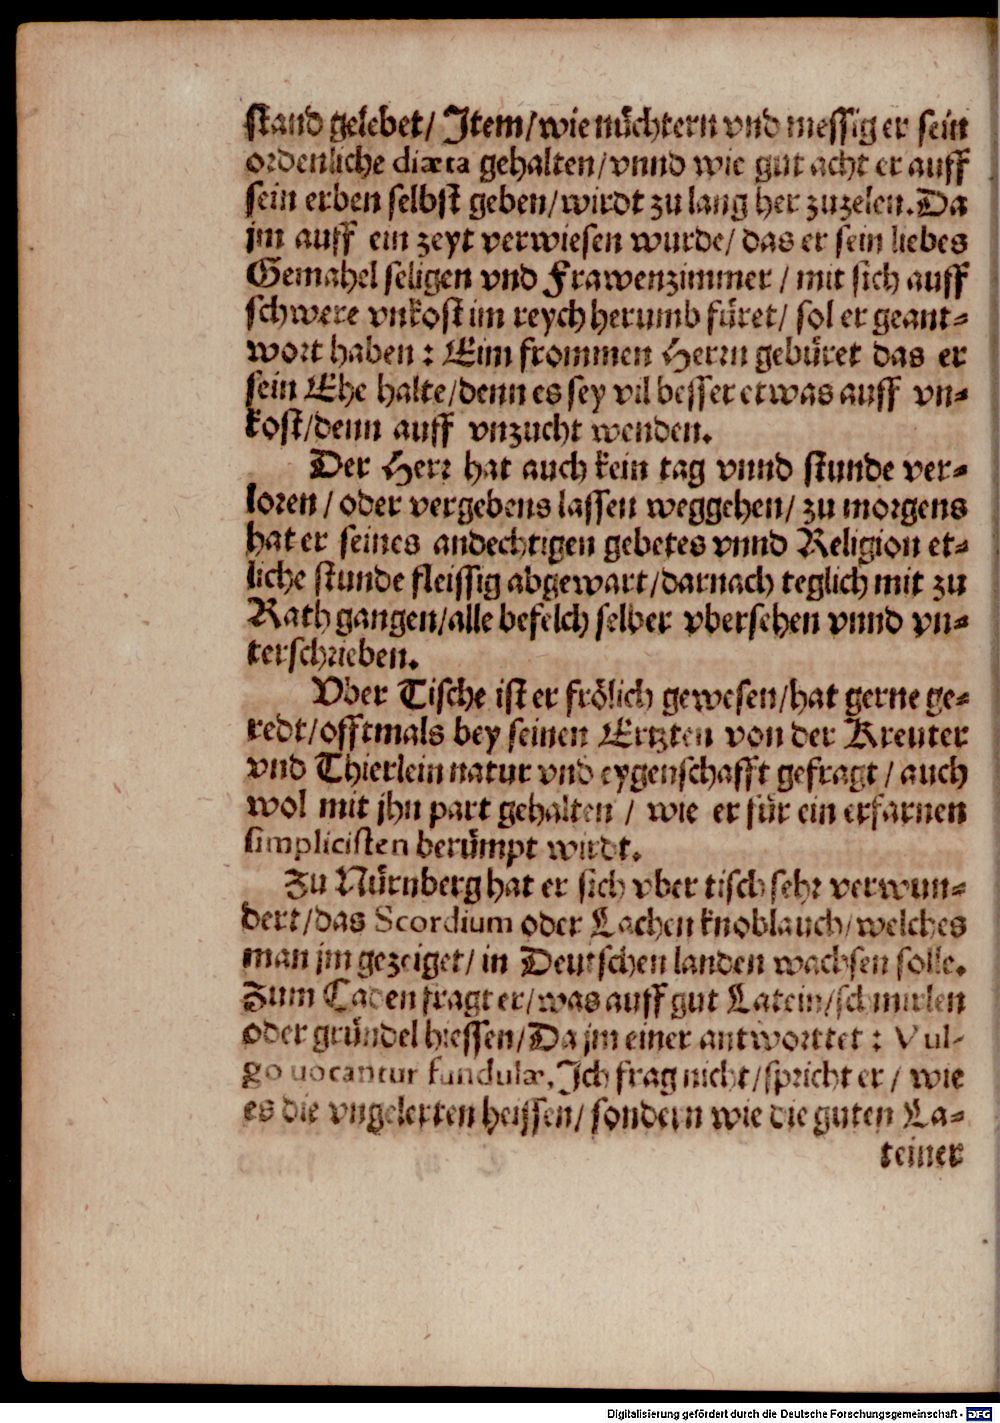 stand gelebet/ Item/ wie nüchtern vnd messig er sein
ordenliche diæta gehalten/ vnnd wie gut acht er auff
sein erben selbst geben/ wirdt zu lang her zuzelen. Da
jm auff ein zeyt verwiesen wurde/ das er sein liebes
Gemahel seligen vnd Frawenzimmer / mit sich auff
schwere vnkost im reych herumb füret/ sol er geant-
wort haben : Eim frommen Herrn gebüret das er
sein Ehe halte/ denn es sey vil besser etwas auff vn-
kost/ denn auff vnzucht wenden.
Der Herr hat auch kein tag vnnd stunde ver-
loren / oder vergebens lassen weggehen/ zu morgens
hat er seines andechtigen gebetes vnnd Religion et-
liche stunde fleissig abgewart/ darnach teglich mit zu
Rath gangen/ alle befelch selber vbersehen vnnd vn-
terschrieben.
Vber Tische ist er frölich gewesen/ hat gerne ge-
redt/ offtmals bey seinen Ertzten von der Kreuter
vnd Thierlein natur vnd eygenschafft gefragt / auch
wol mit jhn part gehalten / wie er für ein erfarnen
simplicisten berümpt wirdt.
Zu Nürnberg hat er sich vber tisch sehr verwun-
dert/ das Scordium oder Lachen knoblauch/ welches
man jm gezeiget/ in Deutschen landen wachsen solle.
Zum Taden fragt er/ was auff gut Latein/ schmirlen
oder gründel hiessen/ Da jm einer antworttet : Vul-
go uocantur fundulæ, Ich frag nicht/ spricht er / wie
es die vngelerten heissen/ sondern wie die guten La-
teiner
Digitalisierung gefördert durch die Deutsche Forschungsgemeinschaft - DFG